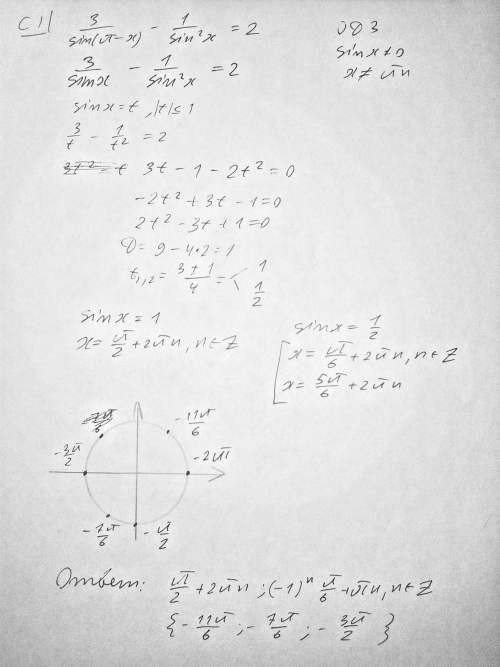 C1
3/sin(π-x) - 1/sin²x = 2
ОДЗ
sinx≠0
x≠πn
3/sinx - 1/sin²x = 2
sinx=t, |t|≤1
3/t - 1/t² = 2
3t - 1 - 2t² = 0
-2t² + 3t - 1 = 0
2t² - 3t + 1 = 0
D = 9 - 4·2 = 1
t₁,₂ = (3±1)/4 = < 1
1/2
sinx = 1
x = π/2 + 2πn, n∈Z
sinx = 1/2
[ x = π/6 + 2πn, n∈Z
x = 5π/6 + 2πn
-11π/6
-3π/2
-2π
-7π/6
-π/2
Ответ: π/2 + 2πn; (-1)ⁿ π/6 + πn, n∈Z
{-11π/6; -7π/6; -3π/2}